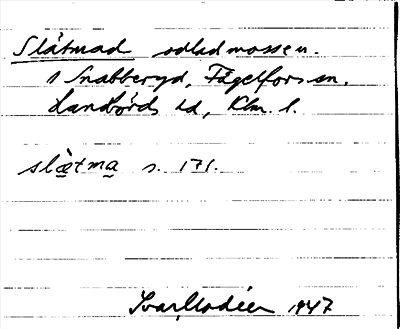 Slätmad odlad mossen.
i Snabberyd, Fågelfors sn.
Handbörds hd, Klm. l.
slæ̀tma s. 171.
Ivar Modéer 1947